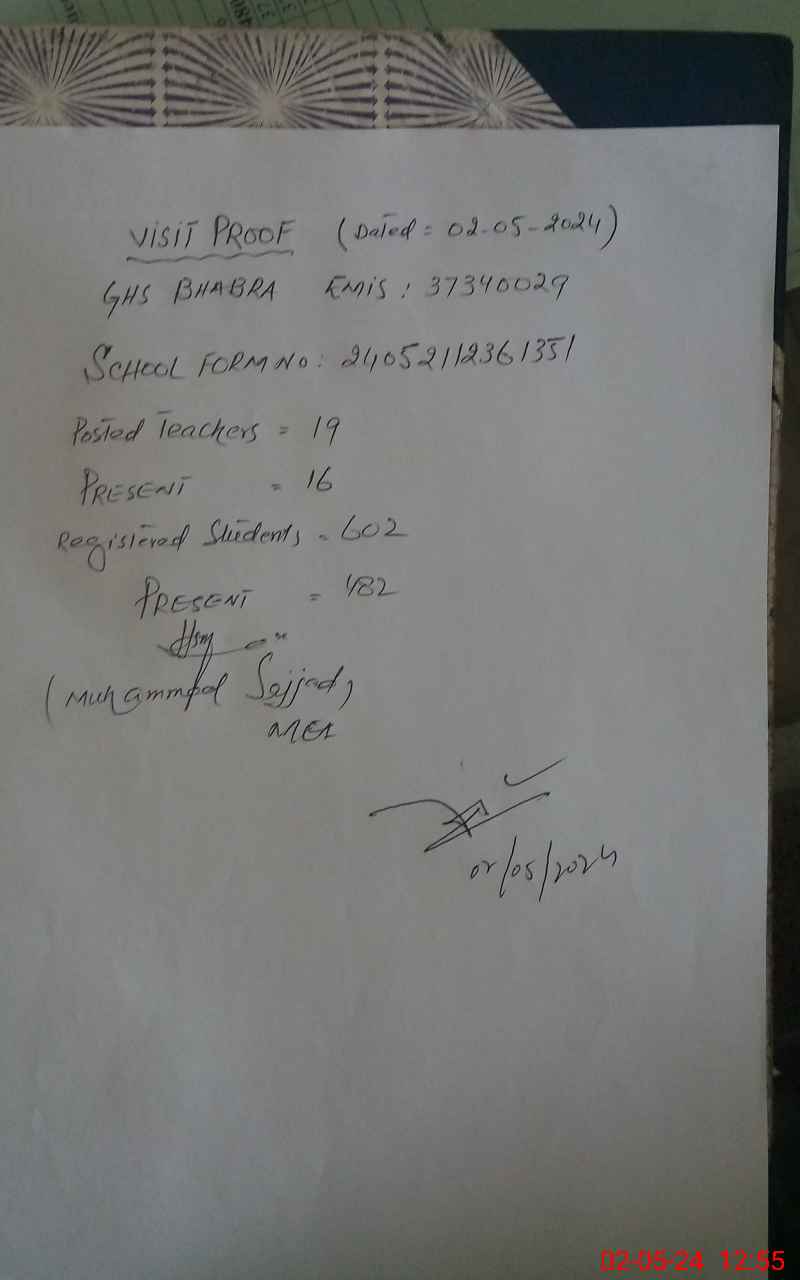 VISIT PROOF (Dated = 02-05-2024)
GHS BHABRA EMIS: 37340029
SCHOOL FORM NO: 24052112361351
Posted Teachers = 19
PRESENT = 16
Registered Students = 602
PRESENT = 482
(Muhammad Sajjad)
MEA
02/05/2024
02-05-24 12:55